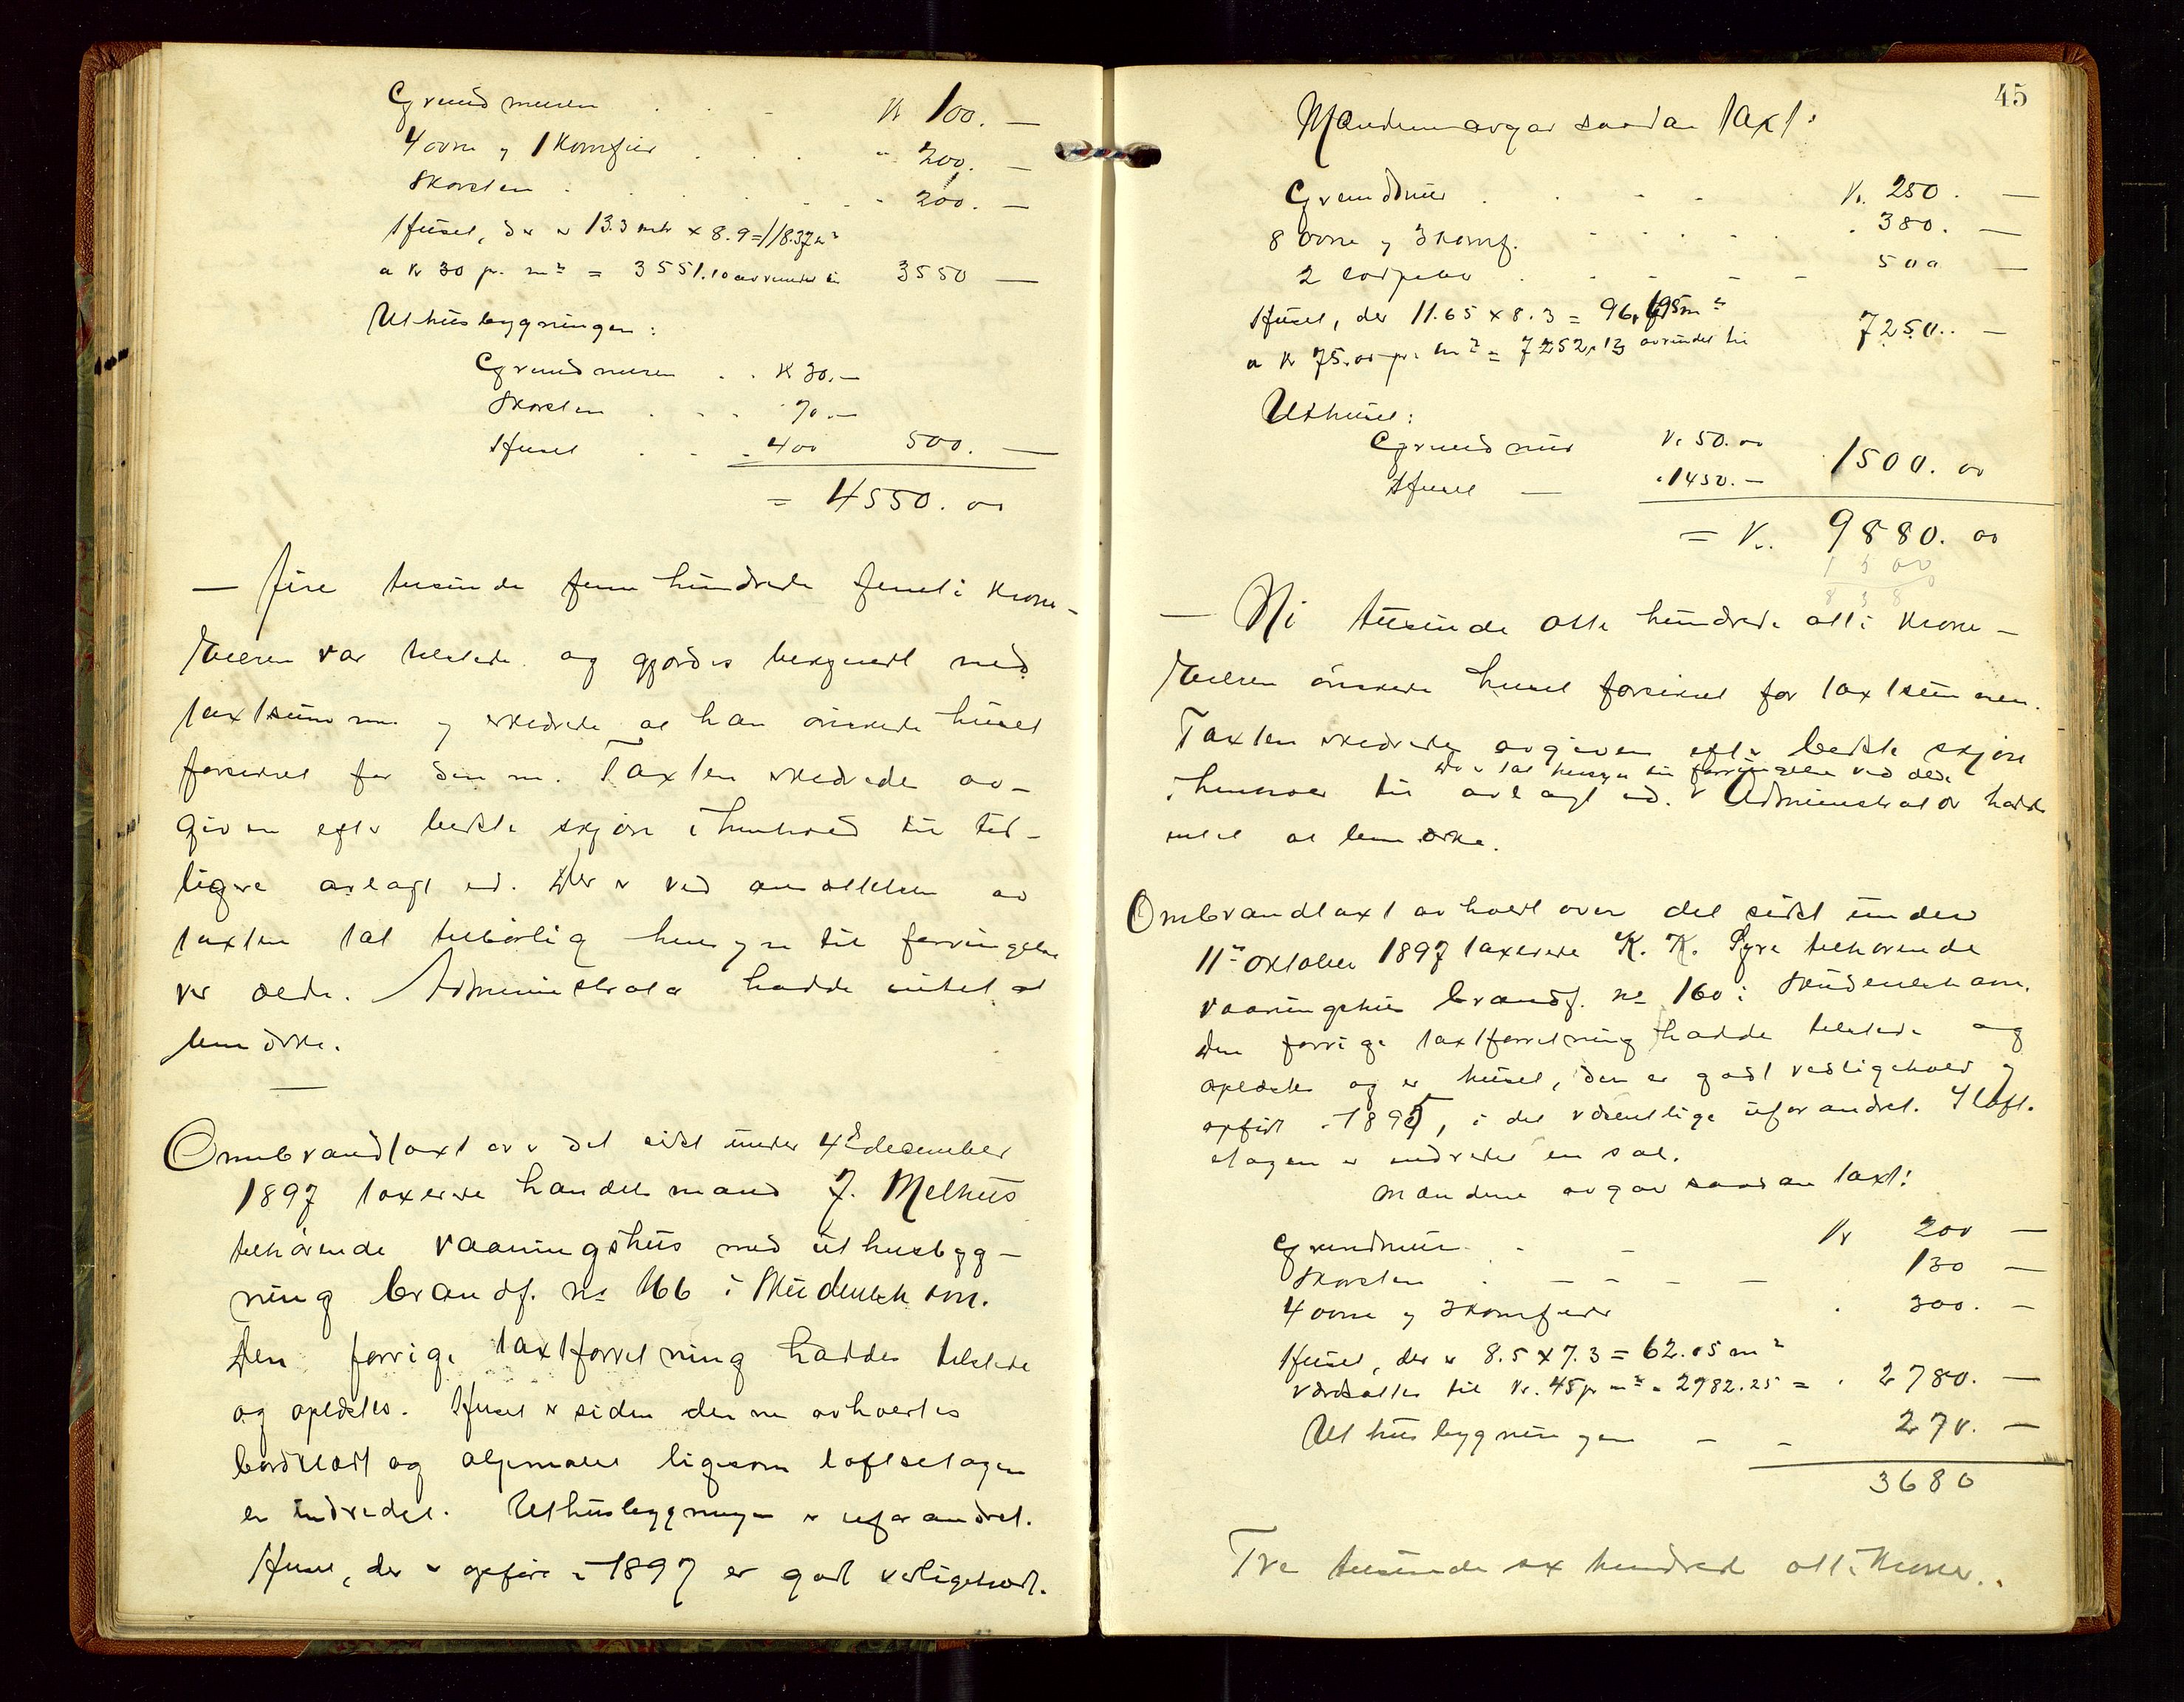 Grundmuren . . - Kr 100. —
4 ovne og 1 Komfur . . . " 200. —
Skorsten . . . . . . " 200. —
Huset, der er 13.3 mtr × 8.9 = 118.37 m²
a Kr 30 pr. m² = 3551.10 avrundet til 3550 —
Uthusbygningen:
Grundmuren . . Kr 30. —
Skorsten . . . " 70. —
Huset . . . 400 500. —
= 4550. 00
— Fire tusinde fem hundrede femti Kroner —
Eieren var tilstede og gjordes bekjendt med
taxtsummen og erklærede at han ønskede huset
forsikret for denne. Taxten erklærede av-
given efter bedste skjøn i henhold til tid-
ligere avlagt ed. Der er ved ansættelsen av
taxten tat tilbørlig hensyn til forringelse
ved ælde. Administrator hadde intet at
bemærke.
—
Ombrandtaxt over det sidst under 4de december
1897 taxerede handelsmand J. Melhus
tilhørende vaaningshus med uthusbyg-
ning brandf. no 166 i Skudeneshavn.
Den forrige taxtforretning haddes tilstede
og oplæstes. Huset er siden denne avholdtes
bordklædt og oljemalet ligesom loftsetagen
er indredet. Uthusbygningen er uforandret.
Huset, der er opført i 1897 er godt vedligeholdt.
45
Mændene avgav saadan taxt:
Grundmur . . - - Kr. 250. —
8 Ovne og 3 Komf. - - . . . . 380. —
2 . - - - - 500 —
Huset, der 11.65 × 8.3 = 96.695 m²
a Kr 75.00 pr. m² = 7252.13 avrundet til 7250. —
Uthuset:
Grundmur Kr 50.00
Huset — " 1450. — 1500. 00
= Kr. 9880. 00
1500
838
— Ni tusinde otte hundrede otti Kroner —
Eieren ønskede huset forsikret for taxtsummen.
Taxten erklæredes avgiven efter bedste skjøn
Der er tat hensyn til forringelse ved ælde
i henhold til avlagt ed. v Administrator hadde
intet at bemærke.
Ombrandtaxt avholdt over det sidst under
11te oktober 1897 taxerede K. K. Syre tilhørende
vaaningshus brandf. no 160 i Skudeneshavn.
Den forrige taxtforretning hadde tilstede og
oplæstes og er huset, der er godt vedligeholdt og
opført i 1895, i det væsentlige uforandret. I loft-
etagen er indredet en sal.
Mændene avgav saadan taxt:
Grundmur . - Kr 200 —
Skorsten . — — — — 130 —
4 ovne og 3 Komfurer . 300. —
Huset, der er 8.5 × 7.3 = 62.05 m²
værdsættes til Kr. 45 pr m² = 2782.25 = . 2780. —
Uthusbygningen — - 270. —
3680
Tre tusinde sex hundrede otti Kroner..